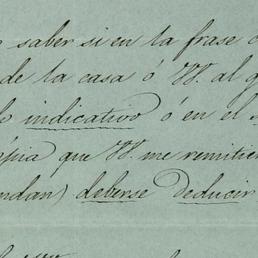 saber si en la frase
de la casa ó W. al
indicativo ó en el
que W. me remitier
deberse deducir